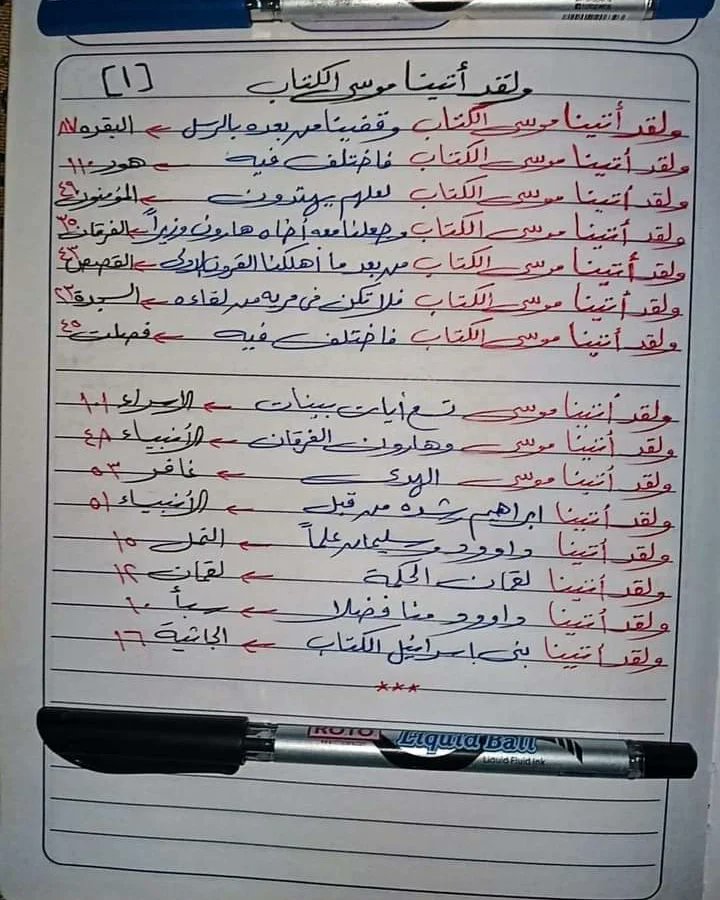 ولقد أتينا موسى الكتاب [١]
ولقد أتينا موسى الكتاب وقفينا من بعده بالرسل ← البقره ٨٧
ولقد أتينا موسى الكتاب فاختلف فيه ← هود ١١٠
ولقد أتينا موسى الكتاب لعلهم يهتدون ← المؤمنون ٤٩
ولقد أتينا موسى الكتاب وجعلنا معه أخاه هارون وزيراً ← الفرقان ٣٥
ولقد أتينا موسى الكتاب من بعد ما أهلكنا القرون الاولى ← القصص ٤٣
ولقد أتينا موسى الكتاب فلا تكن فى مريه من لقاءه ← السجدة ٢٣
ولقد أتينا موسى الكتاب فاختلف فيه ← فصلت ٤٥
ولقد أتينا موسى تسع أيات بينات ← الإسراء ١٠١
ولقد أتينا موسى وهارون الفرقان ← الأنبياء ٤٨
ولقد أتينا موسى الهدى ← غافر ٥٣
ولقد أتينا ابراهيم رشده من قبل ← الأنبياء ٥١
ولقد أتينا داوود وسليمان علماً ← النمل ١٥
ولقد أتينا لقمان الحكمة ← لقمان ١٢
ولقد أتينا داوود منا فضلا ← سبأ ١٠
ولقد أتينا بنى إسرائيل الكتاب ← الجاثية ١٦
***
ROTO Liquid Ball
Liquid Fluid Ink